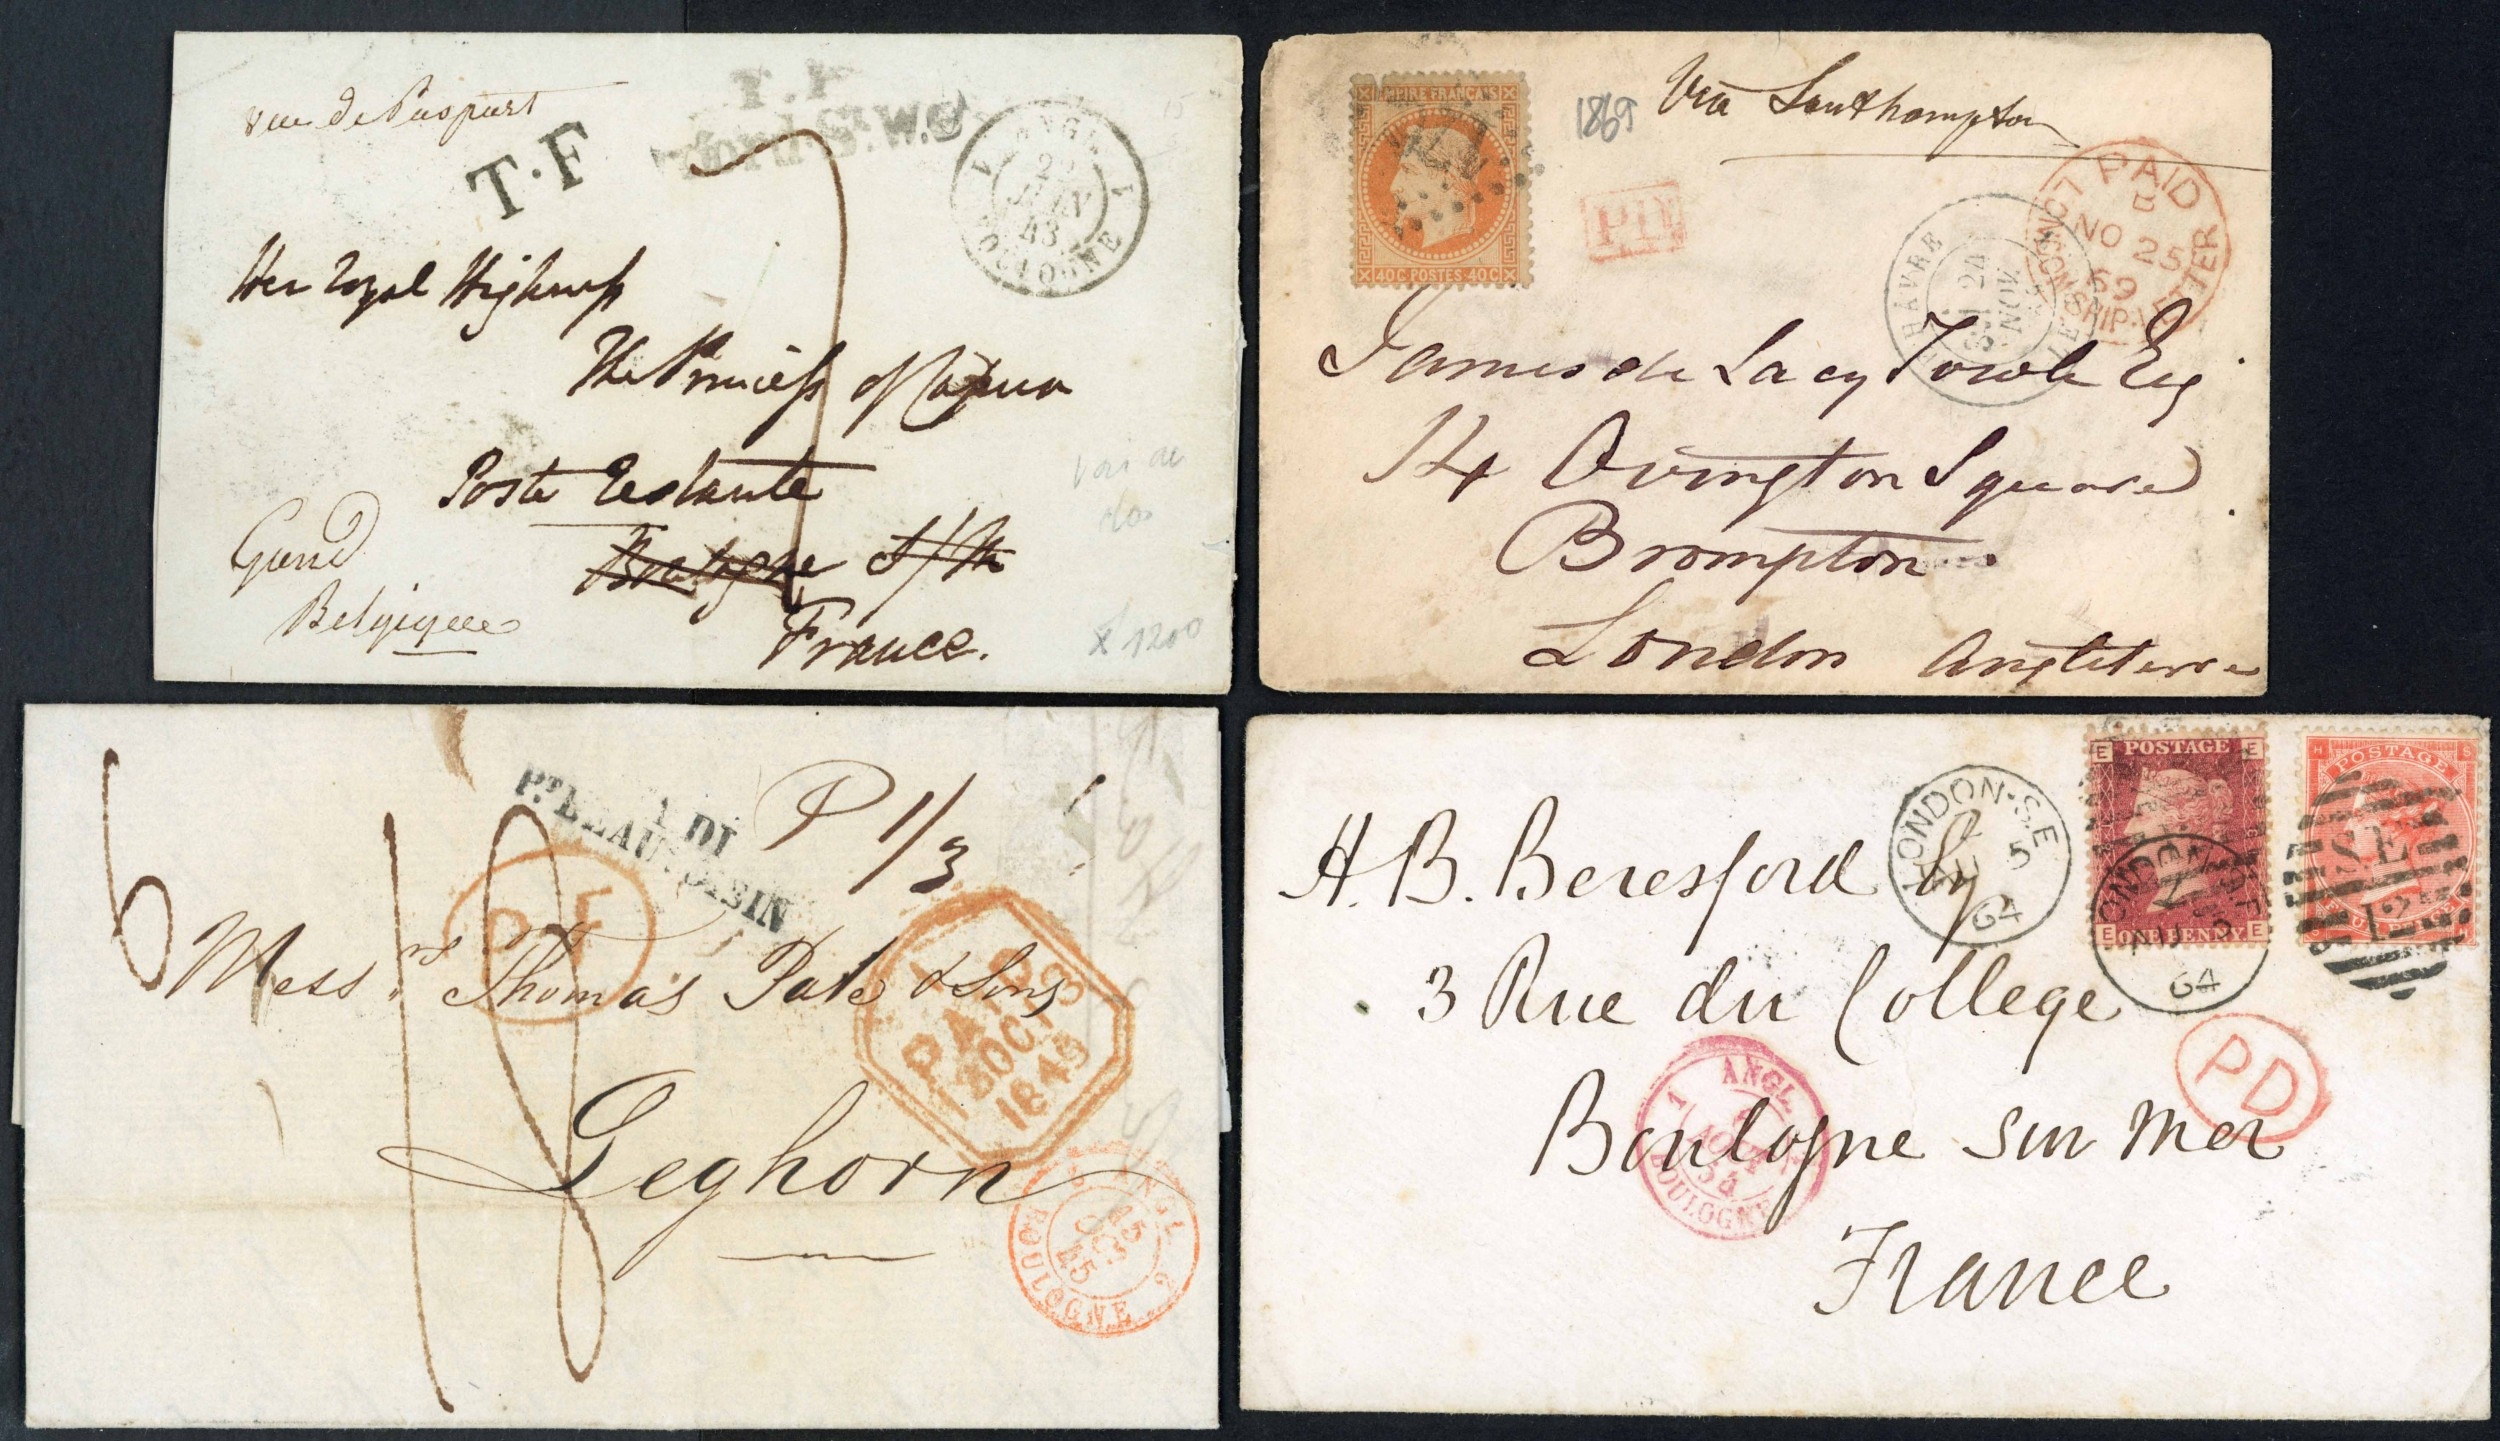 rue de
T.P
St. W.O
T.F
ANGL. 1
JUIN
43
BOULOGNE
Her Royal Highness
The Princess of Capua
Poste Restante
Boulogne S/M
France.
Gand
Belgique
x 1200
EMPIRE FRANÇAIS
40C POSTES 40C
1869
Via Southampton
PD
PAID
LONDON
NO 25
69
SHIP-LETTER
HAVRE
24
NOV.
James de Lacy Towle Esq
14 Ovington Square
Brompton
London Angleterre
6
18
P 1/3
PF
Messrs Thomas Pate & Sons
Leghorn
PAID
OC
1845
2 ANGL. 2
15
OCT
45
BOULOGNE
E POSTAGE E
E ONE PENNY E
H POSTAGE S
S.E
12
LONDON-S.E
5
64
LONDON
64
A. B. Beresford Esq
3 Rue du College
Boulogne sur Mer
France
PD
1 ANGL.
AOUT
64
BOULOGNE